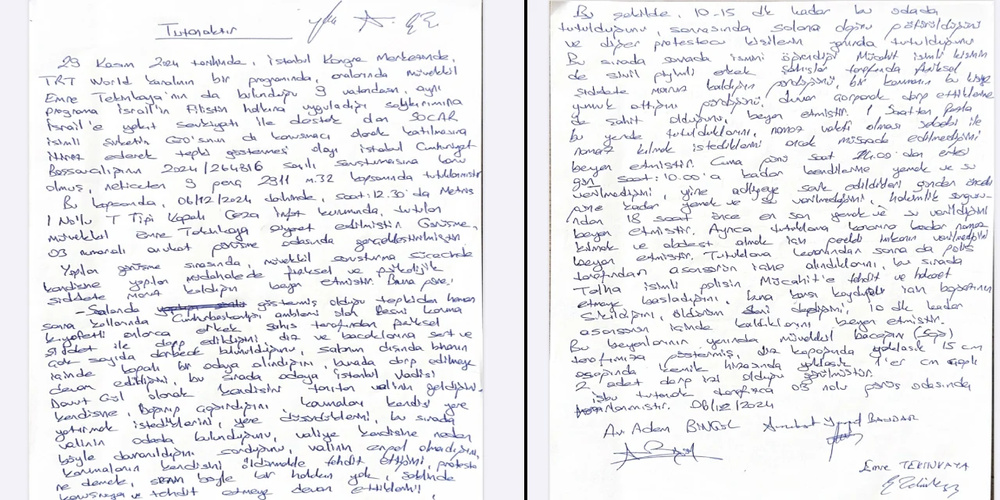 Tutanaktır
29 Kasım 2024 tarihinde, İstanbul Kongre Merkezinde,
TRT World kanalının bir programında, aralarında müvekkil
Emre Tekinkaya'nın da bulunduğu 9 vatandaşın, aynı
programa İsrail'in Filistin halkına uyguladığı saldırılarına
İsrail'e yakıt sevkiyatı ile destek olan SOCAR
isimli şirketin CEO'sunun da konuşmacı olarak katılmasına
itiraz ederek tepki göstermesi olayı İstanbul Cumhuriyet
Başsavcılığının 2024/264816 sayılı soruşturmasına konu
olmuş, neticeten 9 genç 2911 m.32 kapsamında tutuklanmıştır
Bu kapsamda, 06/12/2024 tarihinde, saat: 12.30'da Metris
1 Nolu T Tipi Kapalı Ceza İnfaz kurumunda, tutulan
müvekkil Emre Tekinkaya ziyaret edilmiştir. Görüşme,
03 numaralı avukat görüşme odasında gerçekleştirilmiştir.
Yapılan görüşme sırasında, müvekkil soruşturma sürecinde
kendisine yapılan müdahalede fiziksel ve psikolojik
şiddete maruz kaldığını beyan etmiştir. Buna göre;
- Salonda göstermiş olduğu tepkiden hemen
sonra kollarında Cumhurbaşkanlığı amblemi olan Resmi Koruma
kıyafetli onlarca erkek şahıs tarafından fiziksel
şiddet ile darp edildiğini, diz ve bacaklarına sert ve
çok sayıda darbede bulunulduğunu, salonun dışında binanın
içinde kapalı bir odaya alındığını, burada darp edilmeye
devam edildiğini, bu sırada odaya İstanbul Valisi
Davut Gül olarak kendisini tanıtan valinin geldiğini,
kendisine, bağırıp çağırdığını, korumaların kendisi yere
yatırmak istediklerini, yere düşürdüklerini, bu sırada
valinin odada bulunduğunu, valiye kendisine neden
böyle davranıldığını sorduğunu, valinin engel olmadığını,
korumaların kendisini öldürmekle tehdit ettiğini, protesto
ne demek, senin böyle bir hakkın yok, şeklinde
konuşmaya ve tehdit etmeye devam ettiklerini,
Bu şekilde, 10-15 dk kadar bu odada
tutulduğunu, sonrasında salona doğru götürüldüğünü
ve diğer protestocu kişilerin yanında tutulduğunu
Bu sırada orada ismini öğrendiği Mücahit isimli kişinin
de sivil giyimli erkek şahıslar tarafından fiziksel
şiddete maruz kaldığını gördüğünü, bir korumanın bu kişiye
yumruk attığını gördüğünü, duvara çarparak darp ettiklerine
de şahit olduğunu, beyan etmiştir. 1 saatten fazla
bu yerde tutulduklarını, namaz vakti olması sebebi ile
namaz kılmak istediklerini ancak müsaade edilmediğini
beyan etmiştir. Cuma günü saat 14.00'dan ertesi
gün saat: 10.00'a kadar kendilerine yemek ve su
verilmediğini, yine adliyeye sevk edildikleri günden önceki
güne kadar yemek ve su verilmediğini, hakimlik sorgusu-
ndan 18 saat önce en son yemek ve su verildiğini
beyan etmiştir. Ayrıca tutuklama kararına kadar namaz
kılmak ve abdest almak için gerekli imkanın verilmediğini
beyan etmiştir. Tutuklama kararından sonra da polis
tarafından asansörün içine alındıklarını, bu sırada
Talha isimli polisin Mücahit'e tehdit ve hakaret
etmeye başladığını, buna karşı koyduğu için boğazının
sıkıldığını, öldürürüm seni dediğini, 10 dk kadar
asansörün içinde kaldıklarını beyan etmiştir.
Bu beyanlarının yanında müvekkil bacağını (sağ)
tarafımıza göstermiş, diz kapağında yaklaşık 15 cm
aşağıda kemik hizasında yaklaşık 1'er cm çaplı
2 adet darp izi olduğu görülmüştür.
İşbu tutanak tarafımızca 03 nolu görüş odasında
hazırlanmıştır. 06/12/2024
Av. Adem BİNGÖL
Emre TEKİNKAYA